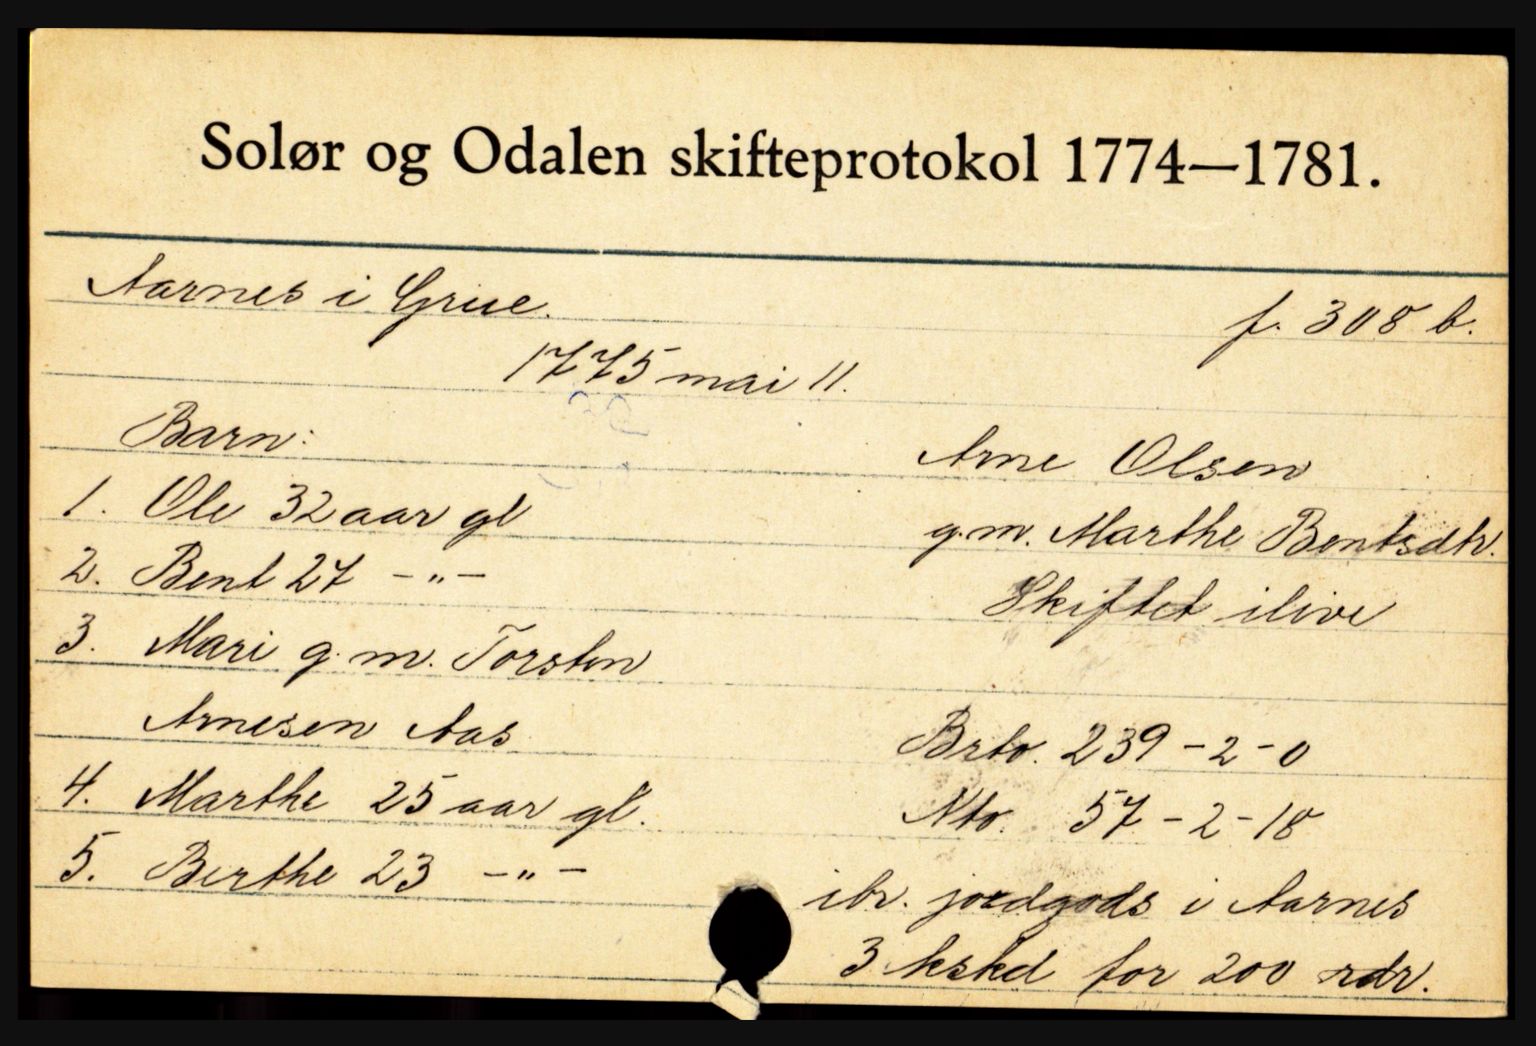 Solør og Odalen skifteprotokol 1774—1781.
Aarnes i Grue.
f. 308 b.
1775 mai 11.
Barn:
1. Ole 32 aar gl
2. Bent 27 -"-
3. Mari g. m. Torsten
Arnesen Aas
4. Marthe 25 aar gl.
5. Berthe 23 -"-
Arne Olsen
g.m. Marthe Bentsdtr.
Skiftet ilive
Brto. 239-2-0
Nto. 57-2-18
ibr. jordgods i Aarnes
3 kskd for 200 rdr.